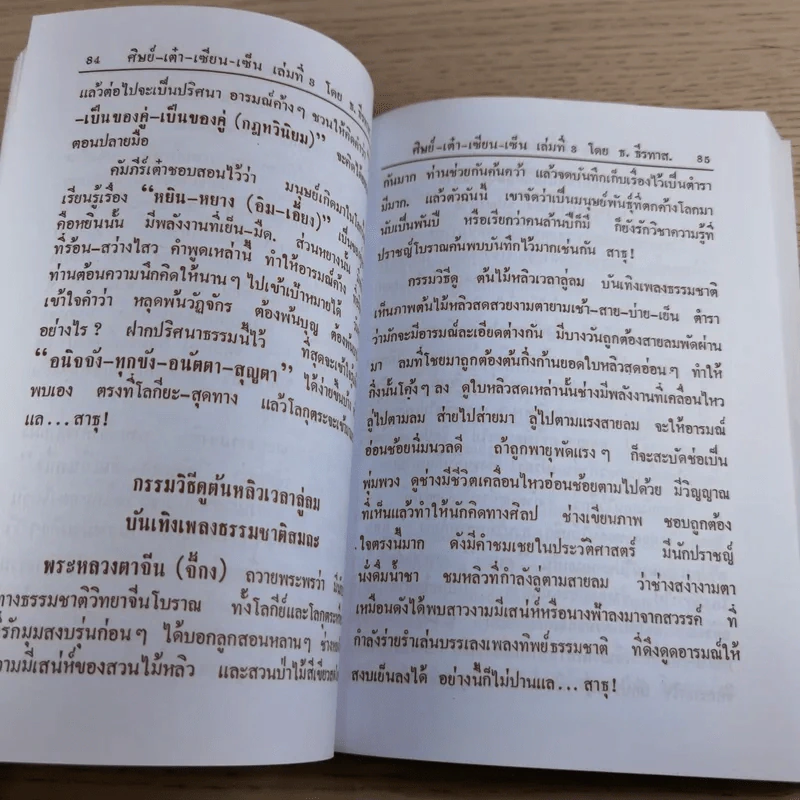 84 ศิษย์-เต๋า-เซียน-เซ็น เล่มที่ 3 โดย ธ.
แล้วต่อไปจะเป็นปริศนา อารมณ์ค้างๆ ชวนให้คิด
-เป็นของคู่-เป็นของคู่ (กฎทวินิยม)” จะคิดได้
ตอนปลายมือ
คัมภีร์เต๋าชอบสอนไว้ว่า มนุษย์เกิดมาใน
เรียนรู้เรื่อง “หยิน-หยาง (อิม-เอี๊ยง)”
คือหยินนั้น มีพลังงานที่เย็น-มืด. ส่วนหยางนั้น
ที่ร้อน-สว่างไสว คำพูดเหล่านี้ ทำให้อารมณ์ค้าง
ท่านต้อนความนึกคิดให้นานๆ ไปเข้าเป้าหมายได้
เข้าใจคำว่า หลุดพ้นวัฏจักร ต้องพ้นบุญ
อย่างไร? ฝากปริศนาธรรมนี้ไว้ ที่สุดจะเข้า
“อนิจจัง-ทุกขัง-อนัตตา-สุญตา” ได้ง่ายขึ้น
พบเอง ตรงที่โลกียะ-สุดทาง แล้วโลกุตระจะ
แล...สาธุ!
กรรมวิธีดูต้นหลิวเวลาลู่ลม
บันเทิงเพลงธรรมชาติสมถะ
พระหลวงตาจีน (จี็กง) ถวายพระพรว่า
ทางธรรมชาติวิทยาจีนโบราณ ทั้งโลกีย์และโลกุตระ
รักมุมสงบรุ่นก่อนๆ ได้บอกลูกสอนหลานๆ
ความมีเสน่ห์ของสวนไม้หลิว และสวนป่าไม้สีเขียว
ศิษย์-เต๋า-เซียน-เซ็น เล่มที่ 3 โดย ธ. ธีรทาส. 85
กันมาก ท่านช่วยกันค้นคว้า แล้วจดบันทึกเก็บเรื่องไว้เป็นตำรา
มีมาก. แล้วตัวฉันนี้ เขาจัดว่าเป็นมนุษย์พันธุ์ที่ตกค้างโลกมา
นับเป็นพันปี หรือเรียกว่าคนล้านปีก็มี ก็ยังรักวิชาความรู้ที่
ปราชญ์โบราณค้นพบบันทึกไว้มากเช่นกัน สาธุ!
กรรมวิธีดู ต้นไม้หลิวเวลาลู่ลม บันเทิงเพลงธรรมชาติ
เห็นภาพต้นไม้หลิวสดสวยงามตายามเช้า-สาย-บ่าย-เย็น ตำรา
ว่ามักจะมีอารมณ์ละเอียดต่างกัน มีบางวันถูกต้องสายลมพัดผ่าน
มา ลมที่โชยมาถูกต้องต้นกิ่งก้านยอดใบหลิวสุดอ่อนๆ ทำให้
กิ่งนั้นโค้งๆ ลง ดูใบหลิวสดเหล่านั้นช่างมีพลังงานที่เคลื่อนไหว
ลู่ไปตามลม ส่ายไปส่ายมา ลู่ไปตามแรงสายลม จะให้อารมณ์
อ่อนช้อยนิ่มนวลดี ถ้าถูกพายุพัดแรงๆ ก็จะสะบัดช่อเป็น
พุ่มพวง ดูช่างมีชีวิตเคลื่อนไหวอ่อนช้อยตามไปด้วย มีวิญญาณ
ที่เห็นแล้วทำให้นักคิดทางศิลป ช่างเขียนภาพ ชอบถูกต้อง
ใจตรงนี้มาก ดังมีคำชมเชยในประวัติศาสตร์ มีนักปราชญ์
นั่งดื่มน้ำชา ชมหลิวที่กำลังลู่ตามสายลม ว่าช่างสง่างามตา
เหมือนดังได้พบสาวงามมีเสน่ห์หรือนางฟ้าลงมาจากสวรรค์ ที่
กำลังร่ายรำเล่นบรรเลงเพลงทิพย์ธรรมชาติ ที่ดึงดูดอารมณ์ให้
สงบเย็นลงได้ อย่างนี้ก็ไม่ปานแล...สาธุ!